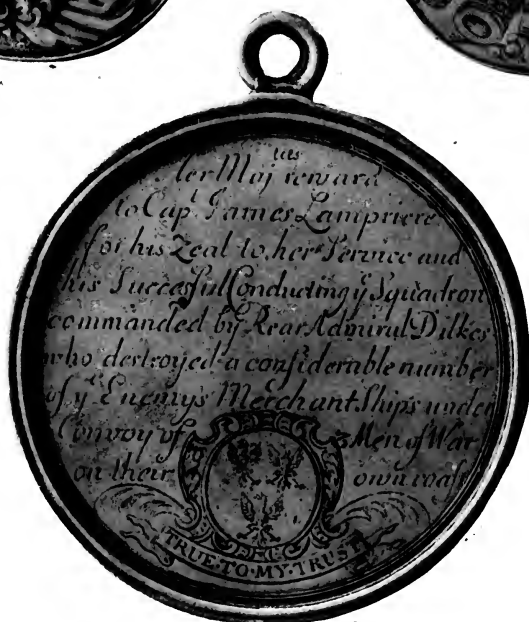 Her Maj.ties reward
to Cap.t James Lampriere
for his Zeal to her Service and
his Succesful Conducting y.e Squadron
commanded by Rear Admiral Dilkes
who destroyed a considerable number
of y.e Enemys Merchant Ships under
Convoy of 3 Men of War
on their own coast
TRUE·TO·MY·TRUST